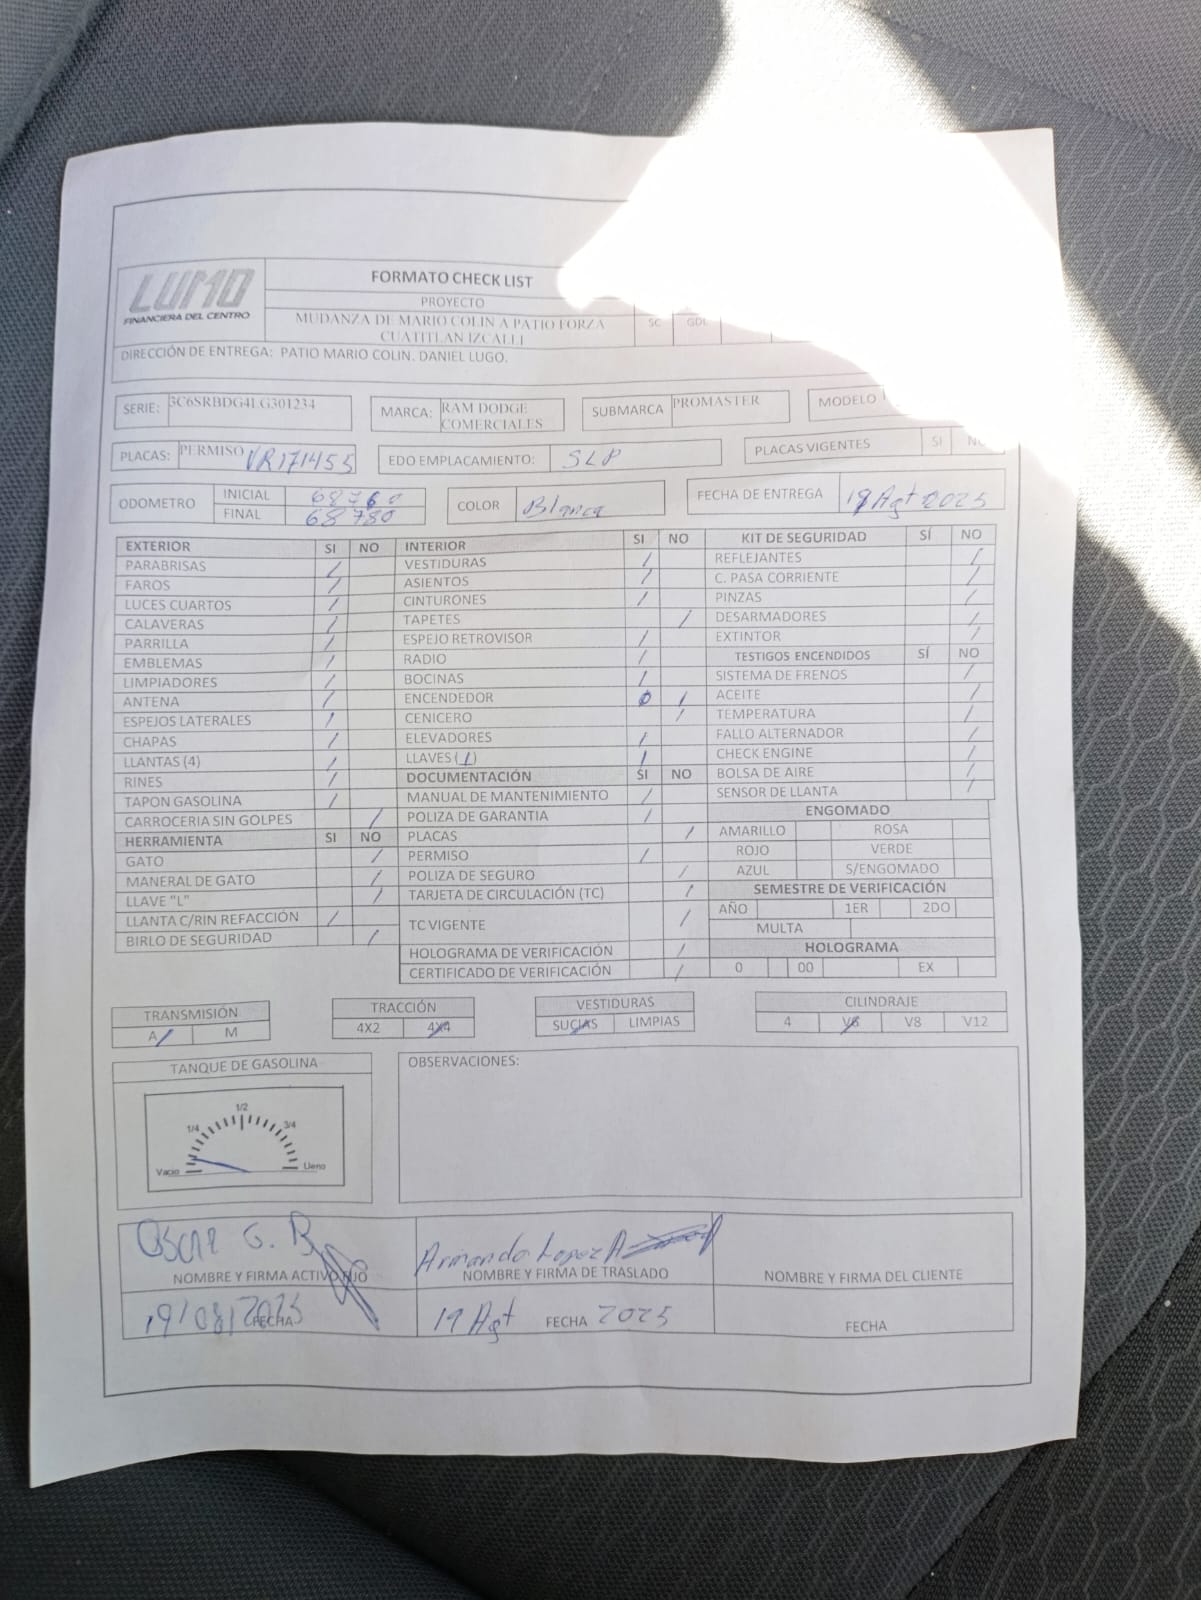 LUMO
FINANCIERA DEL CENTRO
FORMATO CHECK LIST
PROYECTO
MUDANZA DE MARIO COLIN A PATIO FORZA
CUATITLAN IZCALLI
SC GDL
DIRECCIÓN DE ENTREGA: PATIO MARIO COLIN. DANIEL LUGO.
SERIE: 3C6SRBDG4LG301234 MARCA: RAM DODGE COMERCIALES SUBMARCA PROMASTER MODELO
PLACAS: PERMISO VR171455 EDO EMPLACAMIENTO: SLP PLACAS VIGENTES SI NO
ODOMETRO INICIAL 68760 COLOR Blanca FECHA DE ENTREGA 19 Agt 2025
FINAL 68780
EXTERIOR SI NO INTERIOR SI NO KIT DE SEGURIDAD SÍ NO
PARABRISAS / VESTIDURAS / REFLEJANTES /
FAROS / ASIENTOS / C. PASA CORRIENTE /
LUCES CUARTOS / CINTURONES / PINZAS /
CALAVERAS / TAPETES / DESARMADORES /
PARRILLA / ESPEJO RETROVISOR / EXTINTOR /
EMBLEMAS / RADIO / TESTIGOS ENCENDIDOS SÍ NO
LIMPIADORES / BOCINAS / SISTEMA DE FRENOS /
ANTENA / ENCENDEDOR / ACEITE /
ESPEJOS LATERALES / CENICERO / TEMPERATURA /
CHAPAS / ELEVADORES / FALLO ALTERNADOR /
LLANTAS (4) / LLAVES (1) / CHECK ENGINE /
RINES / DOCUMENTACIÓN SI NO BOLSA DE AIRE /
TAPON GASOLINA / MANUAL DE MANTENIMIENTO / SENSOR DE LLANTA /
CARROCERIA SIN GOLPES / POLIZA DE GARANTIA / ENGOMADO
HERRAMIENTA SI NO PLACAS / AMARILLO ROSA
GATO / PERMISO / ROJO VERDE
MANERAL DE GATO / POLIZA DE SEGURO / AZUL S/ENGOMADO
LLAVE "L" / TARJETA DE CIRCULACIÓN (TC) / SEMESTRE DE VERIFICACIÓN
LLANTA C/RIN REFACCIÓN / TC VIGENTE / AÑO 1ER 2DO
BIRLO DE SEGURIDAD / MULTA
HOLOGRAMA DE VERIFICACIÓN / HOLOGRAMA
CERTIFICADO DE VERIFICACIÓN / 0 00 EX
TRANSMISIÓN TRACCIÓN VESTIDURAS CILINDRAJE
A / M 4X2 4X4 SUCIAS LIMPIAS 4 V6 V8 V12
TANQUE DE GASOLINA OBSERVACIONES:
1/2
1/4 3/4
Vacio Lleno
Oscar G. B Armando Lopez A
NOMBRE Y FIRMA ACTIVO FIJO NOMBRE Y FIRMA DE TRASLADO NOMBRE Y FIRMA DEL CLIENTE
19/08/2025 FECHA 19 Agt FECHA 2025 FECHA